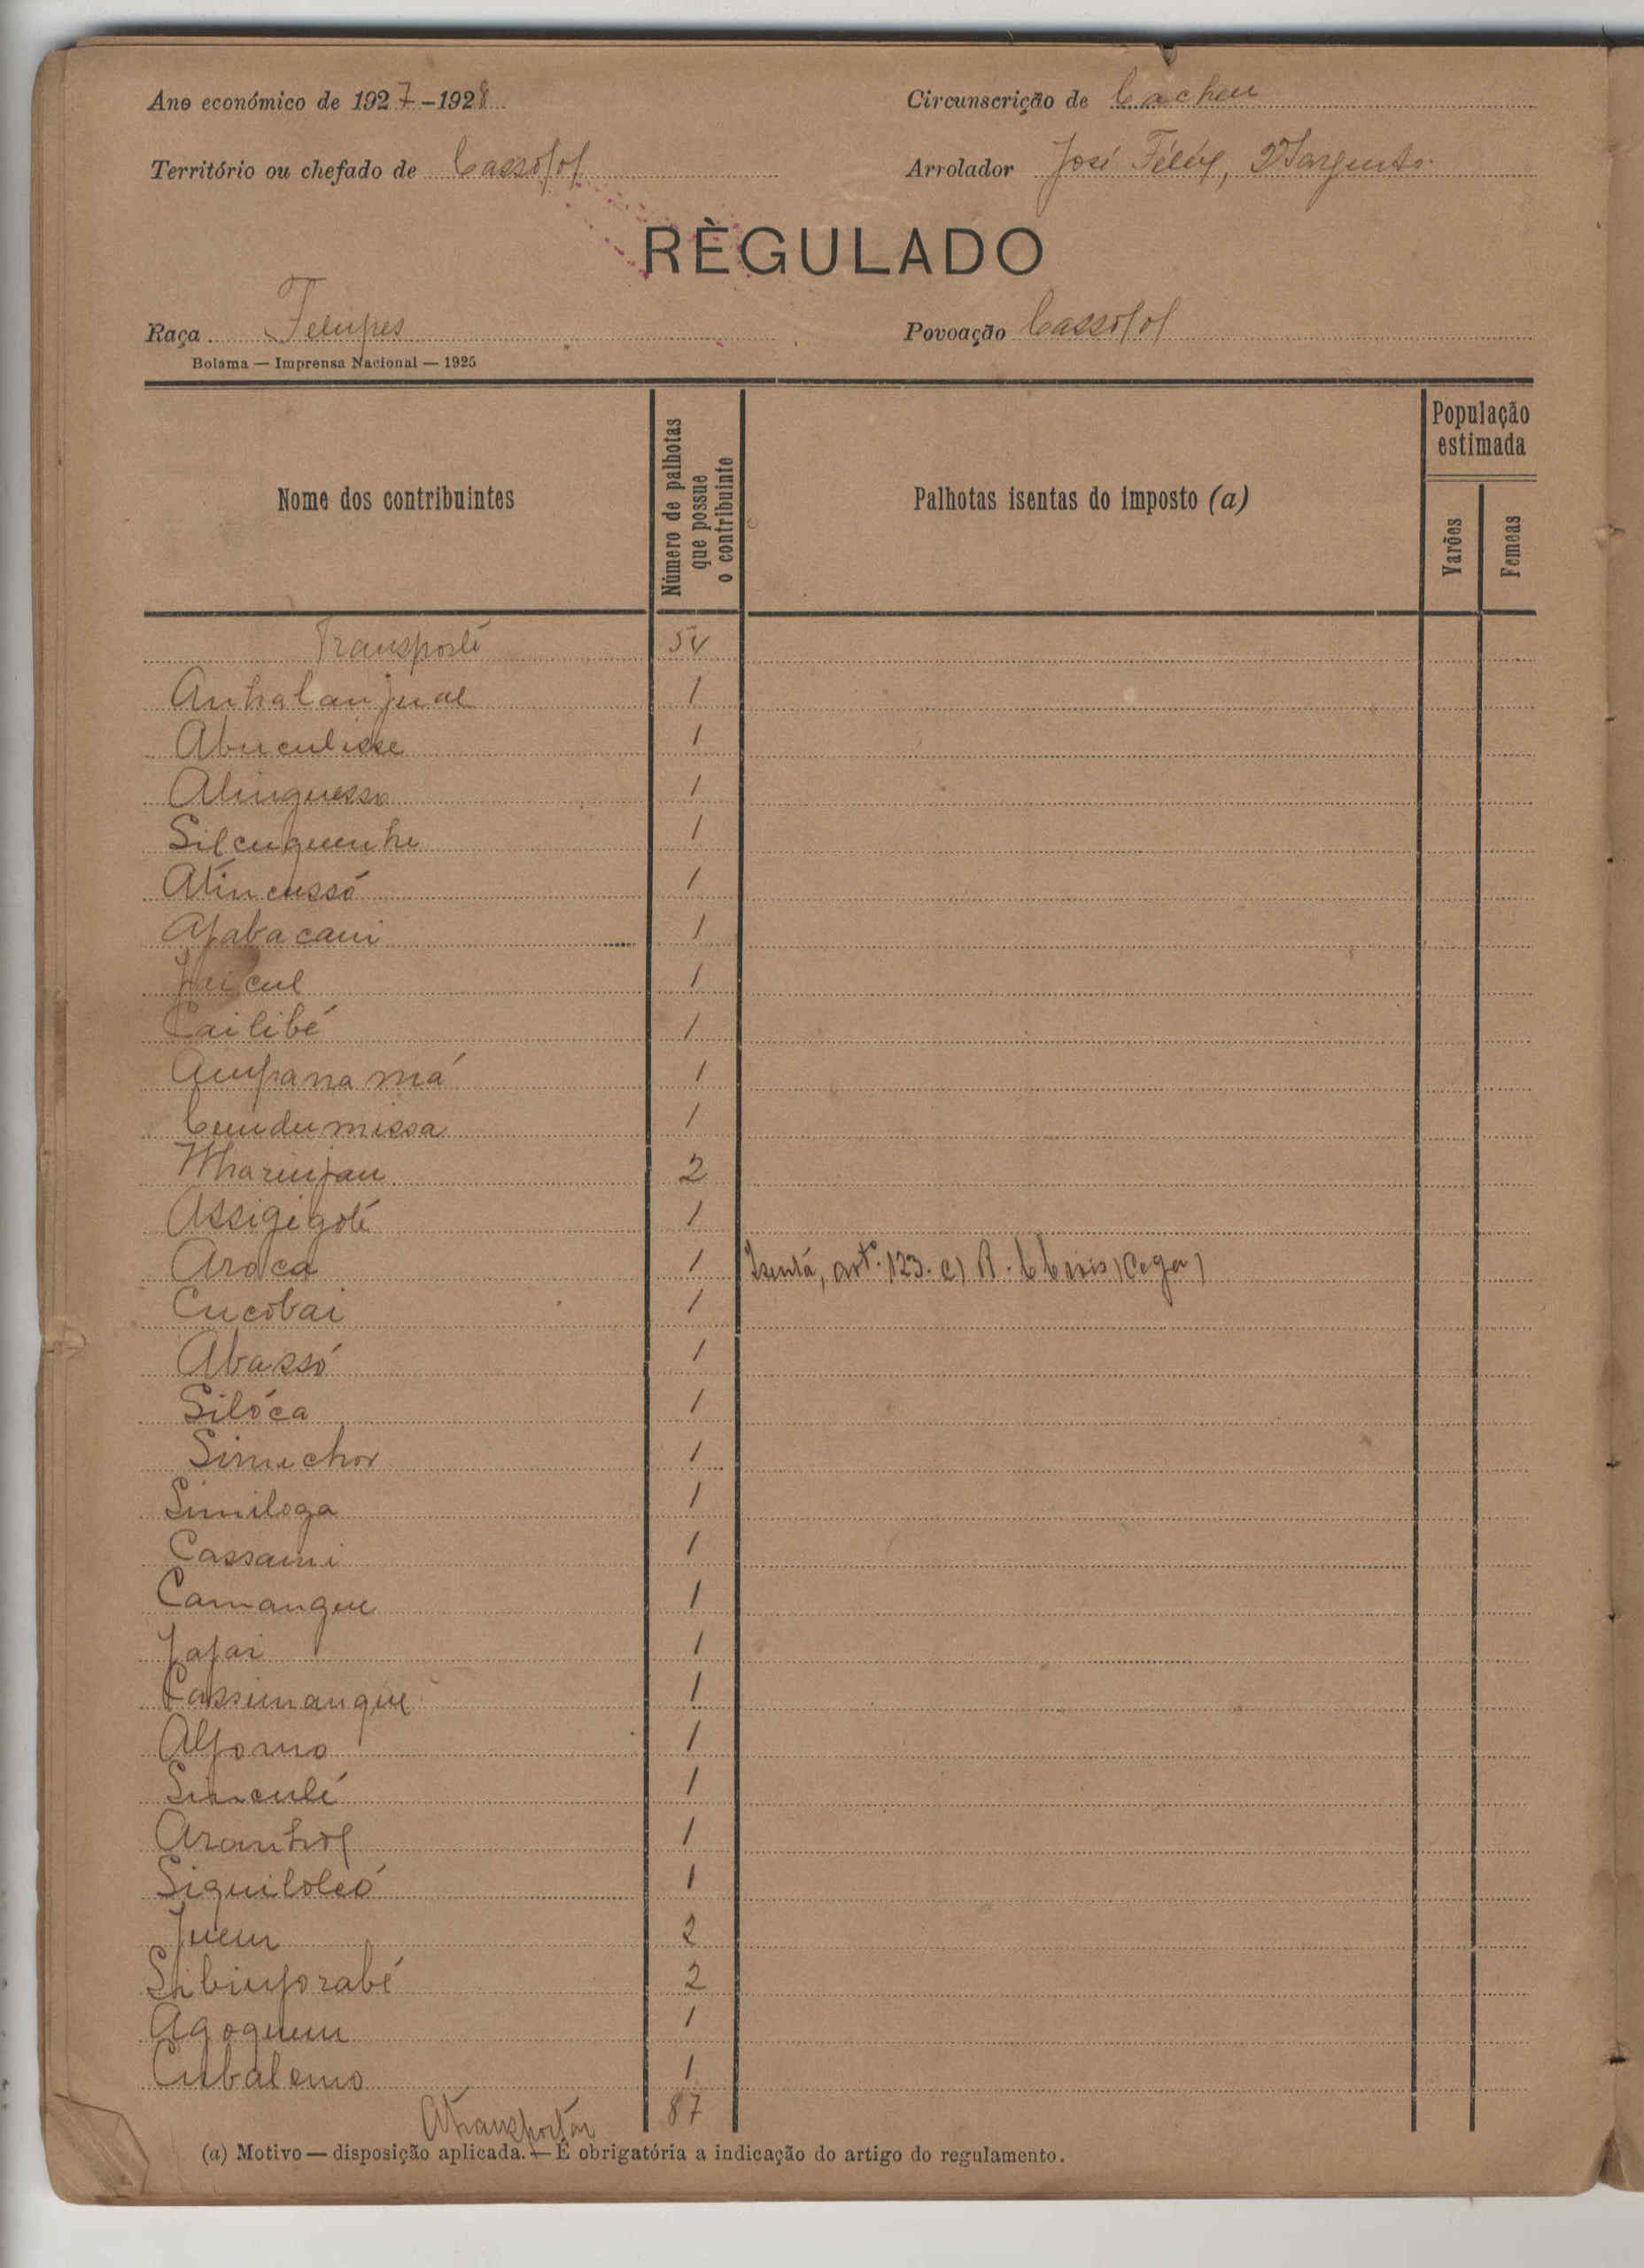 Ano económico de 1927-1928
Circunscrição de Cacheu
Território ou chefado de Cassolol
Arrolador José Félix, 2º Sargento
RÈGULADO
Raça Felupes
Povoação Cassolol
Bolama — Imprensa Nacional — 1925
Nome dos contribuintes
Número de palhotas que possue o contribuinte
Palhotas isentas do imposto (a)
População estimada
Varões
Femeas
Transporte 54
1
Abuculisse 1
Alinguesso 1
1
Atincussó 1
1
1
Cailibé 1
Ampanamá 1
Cundumissa 1
2
Assigigolé 1
Aroca 1 Isentá, artº. 123. c) R.
Cucobai 1
Abassó 1
Silóca 1
Simuchor 1
Similoga 1
Cassami 1
Camangue 1
Jajai 1
Cassimangue 1
Alfomo 1
Sinculé 1
Aranhol 1
Siquiloleó 1
Juem 2
2
Agoquem 1
Cubalemo 1
A transportar 87
(a) Motivo — disposição aplicada. — É obrigatória a indicação do artigo do regulamento.